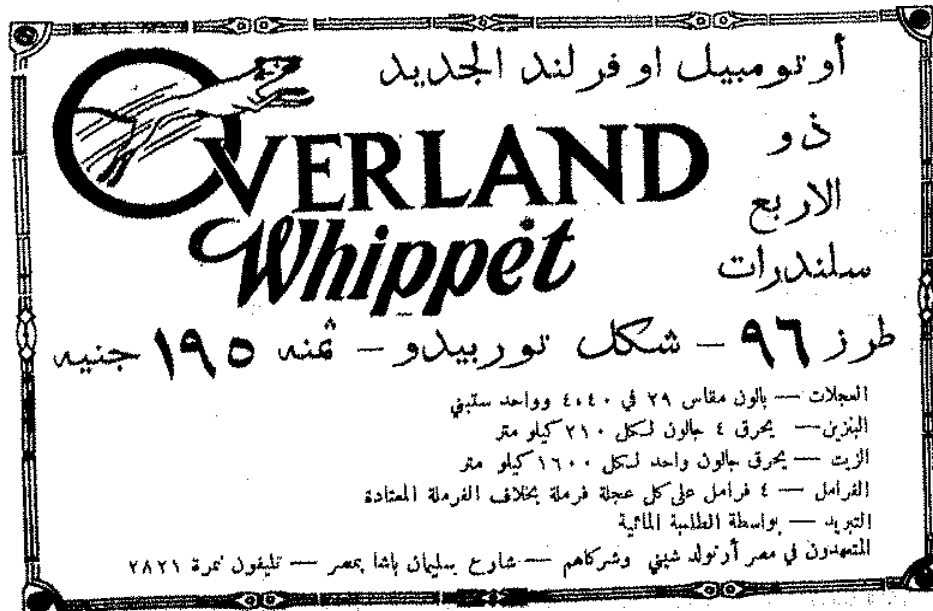 أوتومبيل اوفرلند الجديد
OVERLAND
Whippet
ذو
الاربع
سلندرات
طرز ٩٦ – شكل توربيدو – ثمنه ١٩٥ جنيه
العجلات — بالون مقاس ٢٩ في ٤،٤٠ وواحد ستبني
البنزين — يحرق ٤ جالون لكل ٢١٠ كيلو متر
الزيت — يحرق جالون واحد لكل ١٦٠٠ كيلو متر
الفرامل — ٤ فرامل على كل عجلة فرملة بخلاف الفرملة المعتادة
التبريد — بواسطة الطلمبة المائية
المتعهدون في مصر أرنولد شيني وشركاهم — شارع سليمان باشا بمصر — تليفون نمرة ٢٨٢١